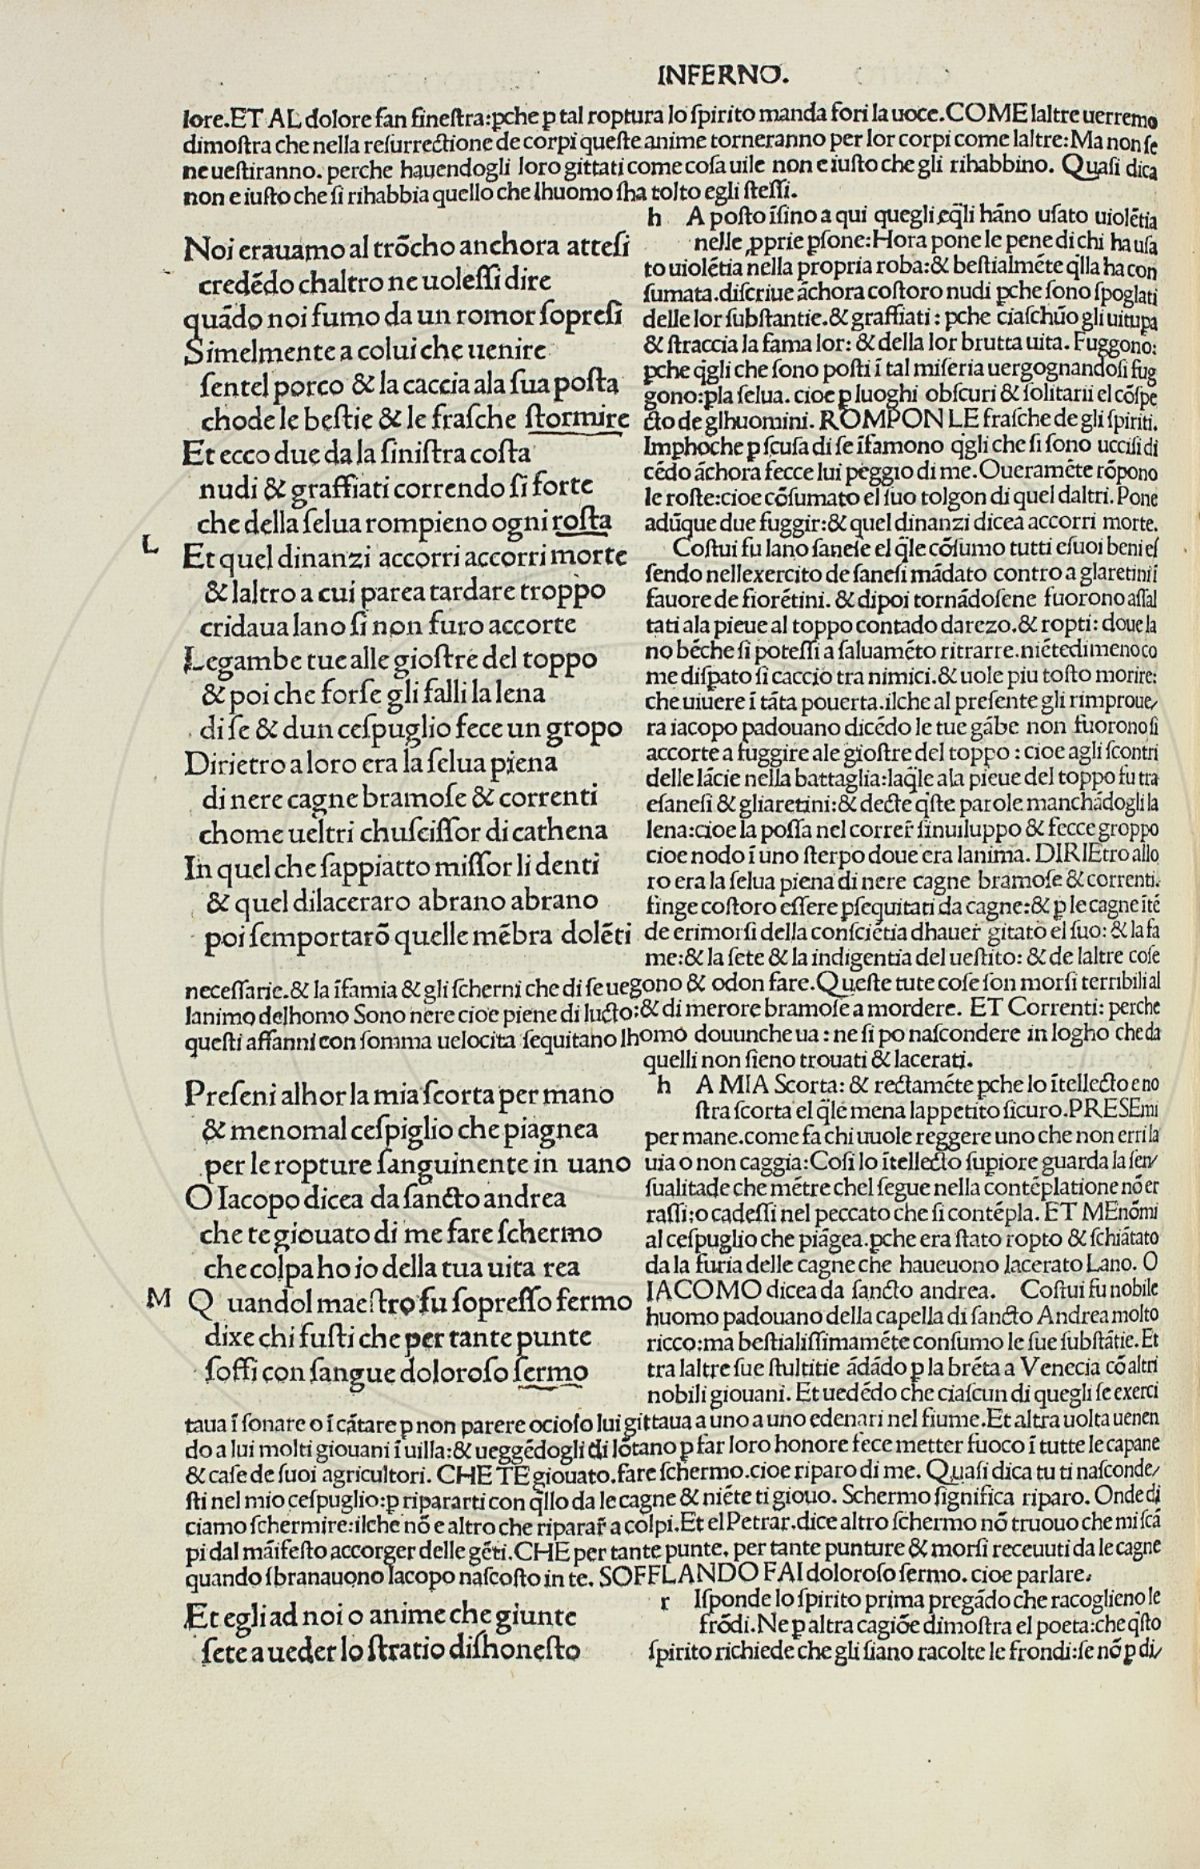 INFERNO.
lore.ET AL dolore fan fineſtra:ꝑche ꝑ tal roptura lo ſpirito manda fori la uoce.COME laltre uerremo
dimoſtra che nella reſurrectione de corpi queſte anime torneranno per lor corpi come laltre:Ma non ſe
ne ueſtiranno. perche hauendogli loro gittati come coſa uile non e iuſto che gli rihabbino. Quaſi dica
non e iuſto che ſi rihabbia quello che lhuomo ſha tolto egli ſteſſi.
Noi erauamo al trōcho anchora atteſi
credēdo chaltro ne uoleſſi dire
quādo noi fumo da un romor ſopreſi
Simelmente a colui che uenire
ſentel porco & la caccia ala ſua poſta
chode le beſtie & le fraſche ſtormire
Et ecco due da la ſiniſtra coſta
nudi & graffiati correndo ſi forte
che della ſelua rompieno ogni roſta
L
Et quel dinanzi accorri accorri morte
& laltro a cui parea tardare troppo
cridaua lano ſi non furo accorte
Legambe tue alle gioſtre del toppo
& poi che forſe gli falli la lena
di ſe & dun ceſpuglio fece un gropo
Dirietro a loro era la ſelua piena
di nere cagne bramoſe & correnti
chome ueltri chuſciſſor di cathena
In quel che ſappiatto miſſor li denti
& quel dilaceraro abrano abrano
poi ſemportarō quelle mēbra dolēti
h A poſto īſino a qui quegli eq̄li hāno uſato uiolētia
nelle ꝓprie ꝑſone:Hora pone le pene di chi ha uſa
to uiolētia nella propria roba:& beſtialmēte q̄lla ha con
ſumata.diſcriue āchora coſtoro nudi ꝑche ſono ſpoglati
delle lor ſubſtantie.& graffiati: ꝑche ciaſchūo gli uitupa
& ſtraccia la fama lor: & della lor brutta uita. Fuggono:
ꝑche q̄gli che ſono poſti ī tal miſeria uergognandoſi fug
gono:ꝑla ſelua. cioe ꝑ luoghi obſcuri & ſolitarii el cōſpe
cto de glhuomini. ROMPON LE fraſche de gli ſpiriti.
Imphoche ꝑ ſcuſa di ſe īfamono q̄gli che ſi ſono ucciſi di
cēdo āchora fecce lui peggio di me.Oueramēte rōpono
le roſte:cioe cōſumato el ſuo tolgon di quel daltri. Pone
adūque due fuggir:& quel dinanzi dicea accorri morte.
Coſtui fu lano ſaneſe el q̄le cōſumo tutti eſuoi beni eſ
ſendo nellexercito de ſaneſi mādato contro a glaretini ī
fauore de fiorētini. & dipoi tornādoſene fuorono aſſal
tati ala pieue al toppo contado darezo.& ropti: doue la
no bēche ſi poteſſi a ſaluamēto ritrarre.niētedimeno co
me diſpato ſi caccio tra nimici.& uole piu toſto morire:
che uiuere ī tāta pouerta.ilche al preſente gli rimproue/
ra iacopo padouano dicēdo le tue gābe non fuorono ſi
accorte a fuggire ale gioſtre del toppo : cioe agli ſcontri
delle lācie nella battaglia:laq̄le ala pieue del toppo fu tra
eſaneſi & gliaretini:& decte q̄ſte parole manchādogli la
lena:cioe la poſſa nel correr̄ ſinuiluppo & fecce groppo
cioe nodo ī uno ſterpo doue era lanima. DIRIEtro allo
ro era la ſelua piena di nere cagne bramoſe & correnti.
finge coſtoro eſſere ꝑſequitati da cagne:& ꝑ le cagne ītē
de erimorſi della conſciētia dhauer̄ gitato el ſuo: & la fa
me:& la ſete & la indigentia del ueſtito: & de laltre coſe
neceſſarie.& la īfamia & gli ſcherni che di ſe uegono & odon fare.Queſte tute coſe ſon morſi terribili al
lanimo delhomo Sono nere cioe piene di lucto:& di merore bramoſe a mordere. ET Correnti: perche
queſti affanni con ſomma uelocita ſequitano lhomo douunche ua : ne ſi po naſcondere in logho che da
quelli non ſieno trouati & lacerati.
Preſeni alhor la mia ſcorta per mano
& menomal ceſpiglio che piagnea
per le ropture ſanguinente in uano
O Iacopo dicea da ſancto andrea
che te giouato di me fare ſchermo
che colpa ho io della tua uita rea
M
Q uandol maeſtro fu ſopreſſo fermo
dixe chi fuſti che per tante punte
ſoffi con ſangue doloroſo ſermo
h A MIA Scorta: & rectamēte ꝑche lo ītellecto e no
ſtra ſcorta el q̄le mena lappetito ſicuro.PRESEmi
per mane.come fa chi uuole reggere uno che non erri la
uia o non caggia:Coſi lo ītellecto ſupiore guarda la ſen/
ſualitade che mētre chel ſegue nella contēplatione nō er
raſſi:o cadeſſi nel peccato che ſi contēpla. ET MEnōmi
al ceſpuglio che piāgea.ꝑche era ſtato ropto & ſchiātato
da la furia delle cagne che haueuono lacerato Lano. O
IACOMO dicea da ſancto andrea. Coſtui fu nobile
huomo padouano della capella di ſancto Andrea molto
ricco:ma beſtialiſſimamēte conſumo le ſue ſubſtātie. Et
tra laltre ſue ſtultitie ādādo ꝑ la brēta a Venecia cō altri
nobili giouani. Et uedēdo che ciaſcun di quegli ſe exerci
taua ī ſonare o ī cātare ꝑ non parere ocioſo lui gittaua a uno a uno edenari nel fiume.Et altra uolta uenen
do a lui molti giouani ī uilla:& ueggēdogli di lōtano ꝑ far loro honore fece metter fuoco ī tutte le capane
& caſe de ſuoi agricultori. CHE TE giouato.fare ſchermo.cioe riparo di me. Quaſi dica tu ti naſconde/
ſti nel mio ceſpuglio:ꝑ ripararti con q̄llo da le cagne & niēte ti giouo. Schermo ſignifica riparo. Onde di
ciamo ſchermire:ilche nō e altro che riparar̄ a colpi.Et el Petrar.dice altro ſchermo nō truouo che mi ſcā
pi dal māifeſto accorger delle gēti.CHE per tante punte, per tante punture & morſi receuuti da le cagne
quando ſbranauono Iacopo naſcoſto in te. SOFFLANDO FAI doloroſo ſermo. cioe parlare.
Et egli ad noi o anime che giunte
ſete a ueder lo ſtratio diſhoneſto
r Iſponde lo ſpirito prima pregādo che racoglieno le
frōdi.Ne ꝑ altra cagiōe dimoſtra el poeta:che q̄ſto
ſpirito richiede che gli ſiano racolte le frondi:ſe nō ꝑ di/